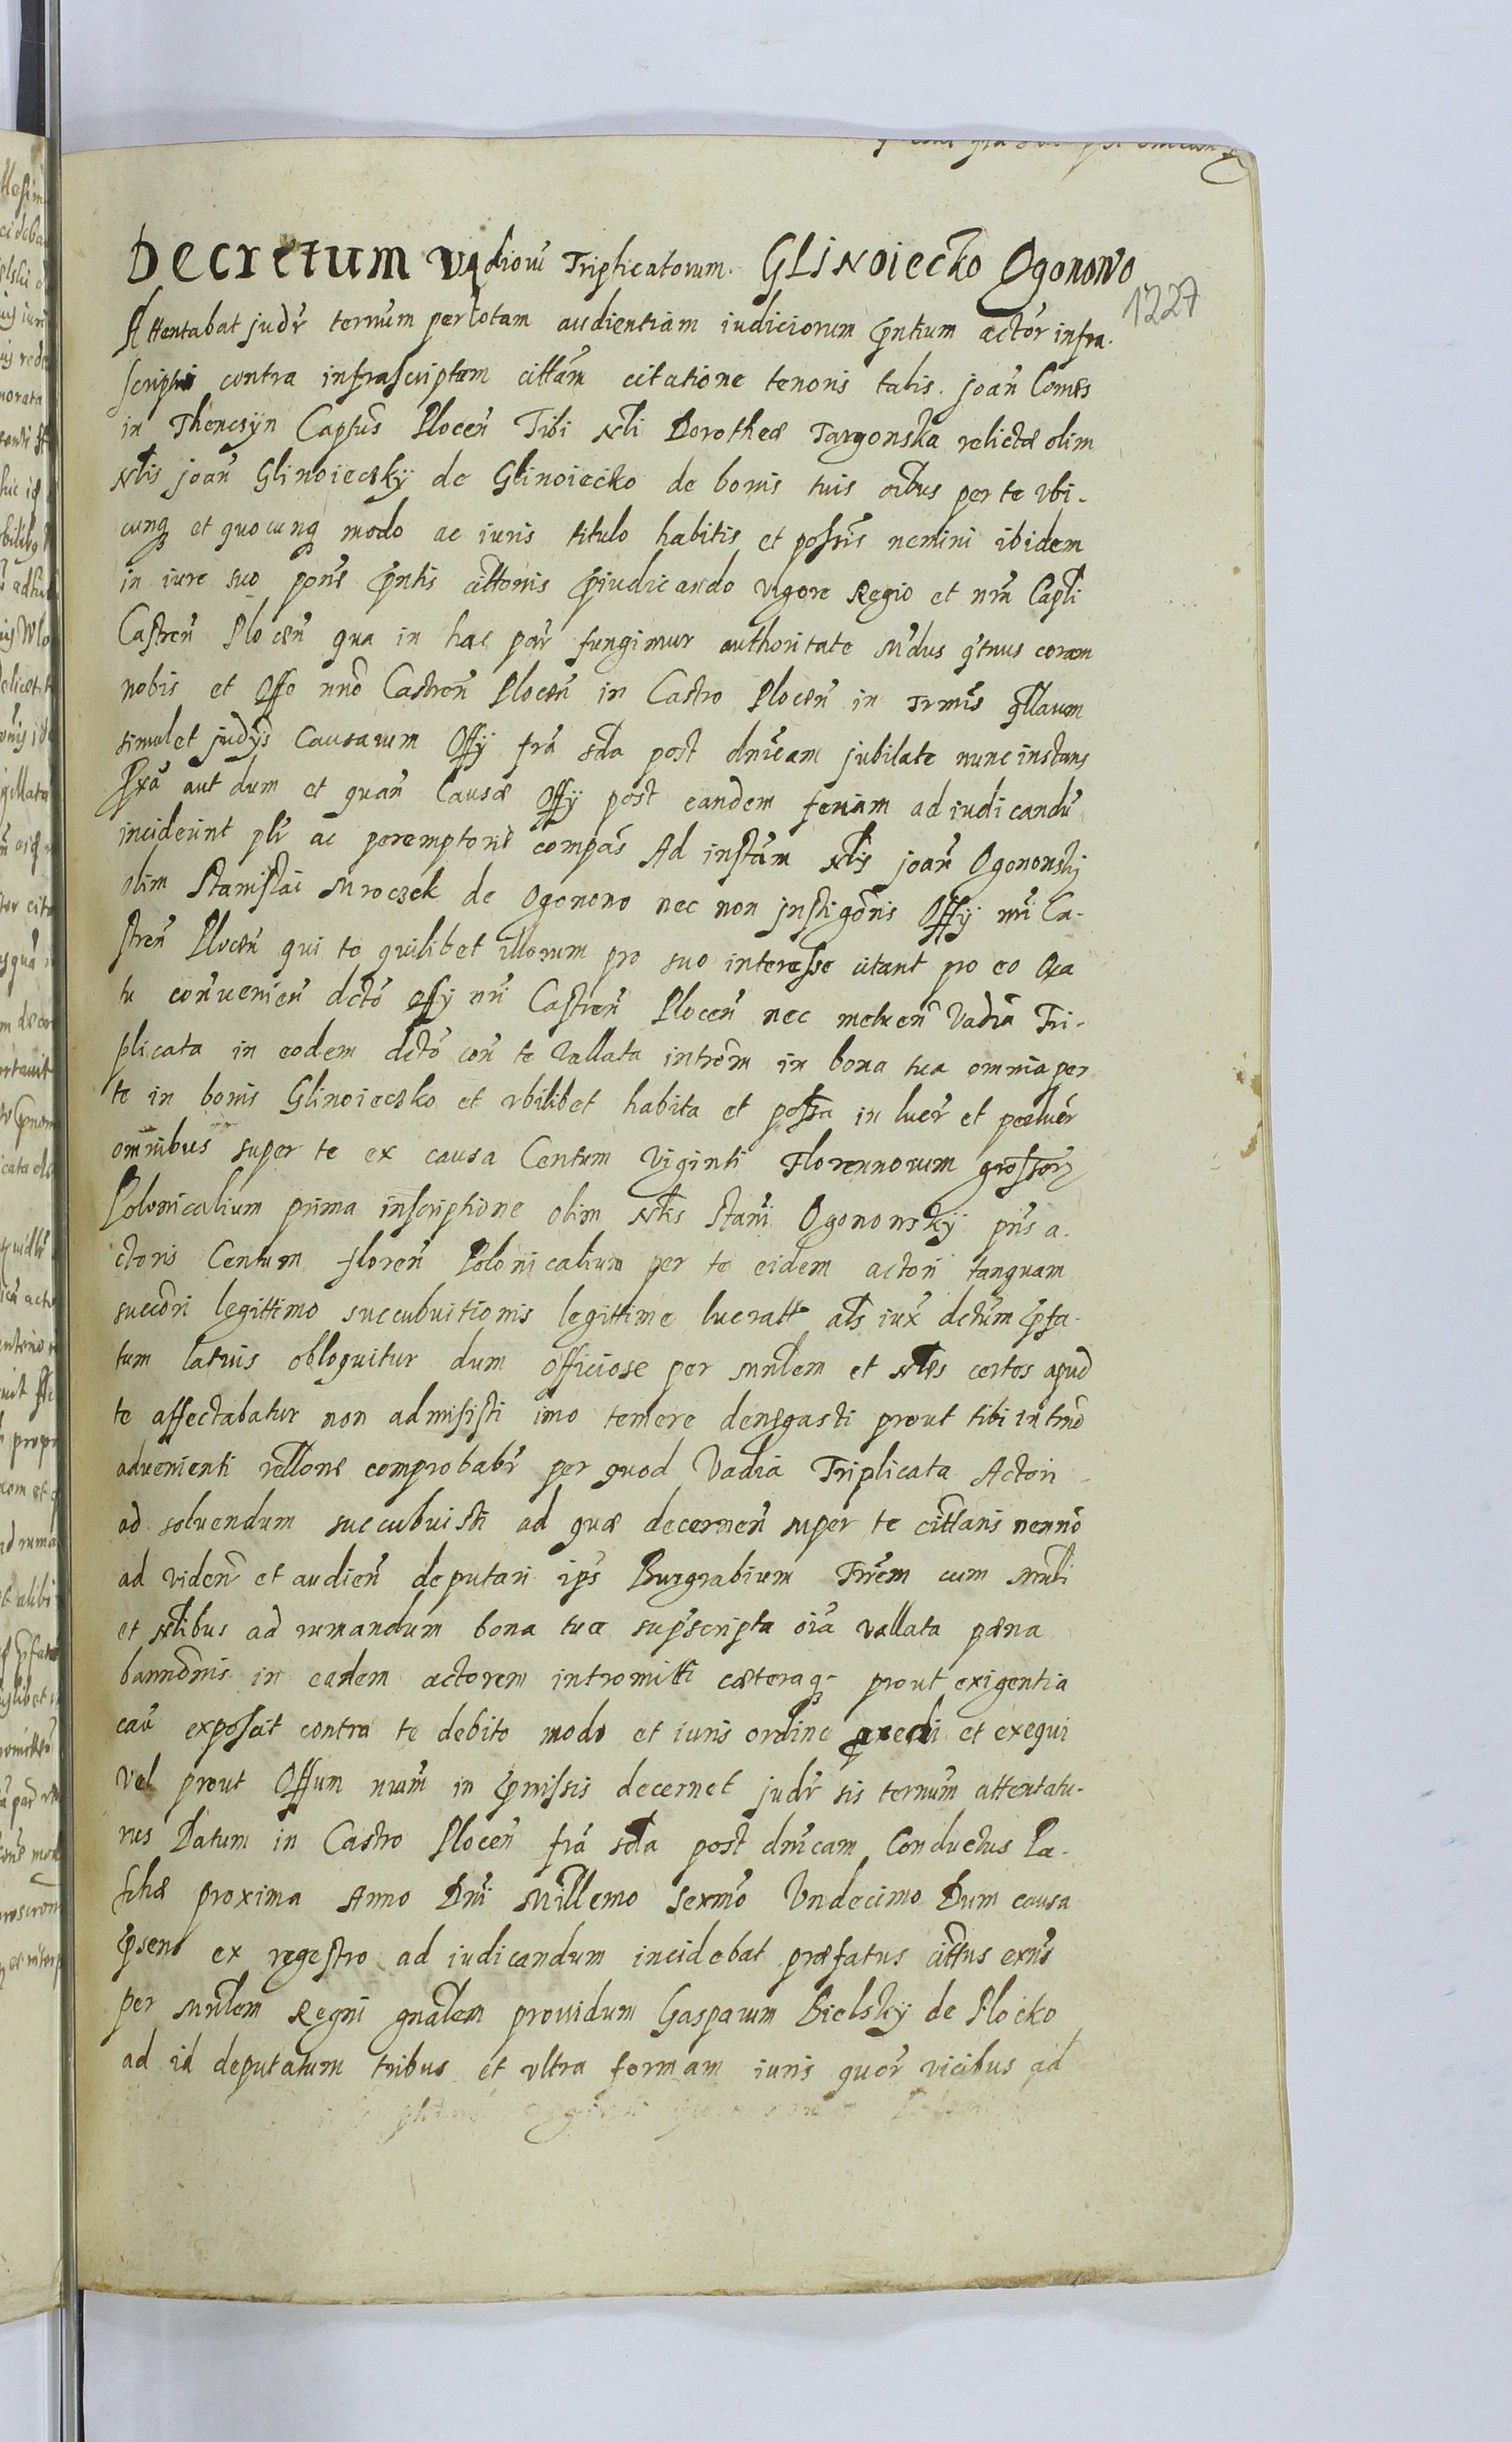 Decretum Vadiorũ Triplicatorum. GLiNoiecko Ogonowo
1227
Attentabat judr̃ ternũm per totam audientiam iudiciorum p̃ntium actor̃ infra.
scripti contra infrascriptam cittãm citatione tenoris talis. joañ Comẽs
in Thencsÿn Captũs Ploceñ Tibi Nbli Dorotheæ Targonska relictæ olim
Nblis joañ Glinoieckÿ de Glinoiecko de bonis tuis oĩbus per te vbi-
cunq et quocunq modo ac iuris titulo habitis et possis̃ nemini ibidem
in iure suo pon̄s p̃ntis cittonis p̃iudicando vigore Regio et nr̃m Captli
Castreñ Ploceñ qua in hac par̃ fungimur authoritate M̃dus q̃tnus coram
nobis et Offo nr̃o Castreñ Ploceñ in Castro Ploceñ in Trm̃is q̃llarum
simulet judÿs Causarum Offÿ frã sda post dnĩcam jubilate nunc instans
Pxã aut dum et quañ Causæ Offÿ post eandem feriam ad iudicandũ
inciderint pl̃r ac peremptoriẽ compãs Ad instãm Nblis joañ Ogonowskÿ
olim Stanislai Mroczek de Ogonowo nec non jnstigõris Offÿ nr̃i Ca-
streñ Ploceñ qui te quilibet illorum pro suo interesse citant pro eo Qia
tu conũenieñ dcto offÿ nr̃i Castreñ Ploceñ nec metueñ Vadia Tri-
plicata in eodem dcto con̄ te Vallata intrõm in bona tua omnia per
te in bonis Glinoiecsko et vbilibet habita et possa in luer̃ et pertuer̃
omnibus super te ex causa Centum Viginti Florennorum grossor
Polonicalium prima inscriptione olim Nblis Stani Ogonowskÿ pr̃is a.
ctoris Centum floreñ Polonicalium per te eidem actori tanquam
succõri legittimo succubuitionis legittime lucratt als iux̃ dctũm p̃fa-
tum latius obloquitur dum officiose per Mnlem et Nbles certos apud
te affectabatur non admisisti imo temere denegasti prout tibi in trnõ
aduenienti rellone comprobabr̃ per quod Vadia Triplicata Actori
ad soluendum succubuisti ad quæ decerneñ super te cittaris nennõ
ad videñ et audieñ deputari ips Burgrabium Trr̃em cum Mnli
et Nblibus ad rumandum bona tua sup̃scripta oĩa vallata pæna
bannõnis in eadem actorem intromitti cæteraq prout exigentia
cau exposcit contra te debito modo et iuris ordine p̃cedi et exequi
Vel prout Offum nrãm in p̃missis decernet judr̃ sis ternum attentatu-
rus Datum in Castro Ploceñ frã sda post dnĩcam Conductus Pa-
schæ proxima Anno Dnĩ Millemo Sexmõ Vndecimo Dum causa
p̃sens ex regestro ad iudicandum incidebat præfatus cittus exñs
per Mnlem Regni gnalem prouidum Gasparum Bielskÿ de Plocko
ad id deputatum tribus et vltra formam iuris quor̃ vicibus ad